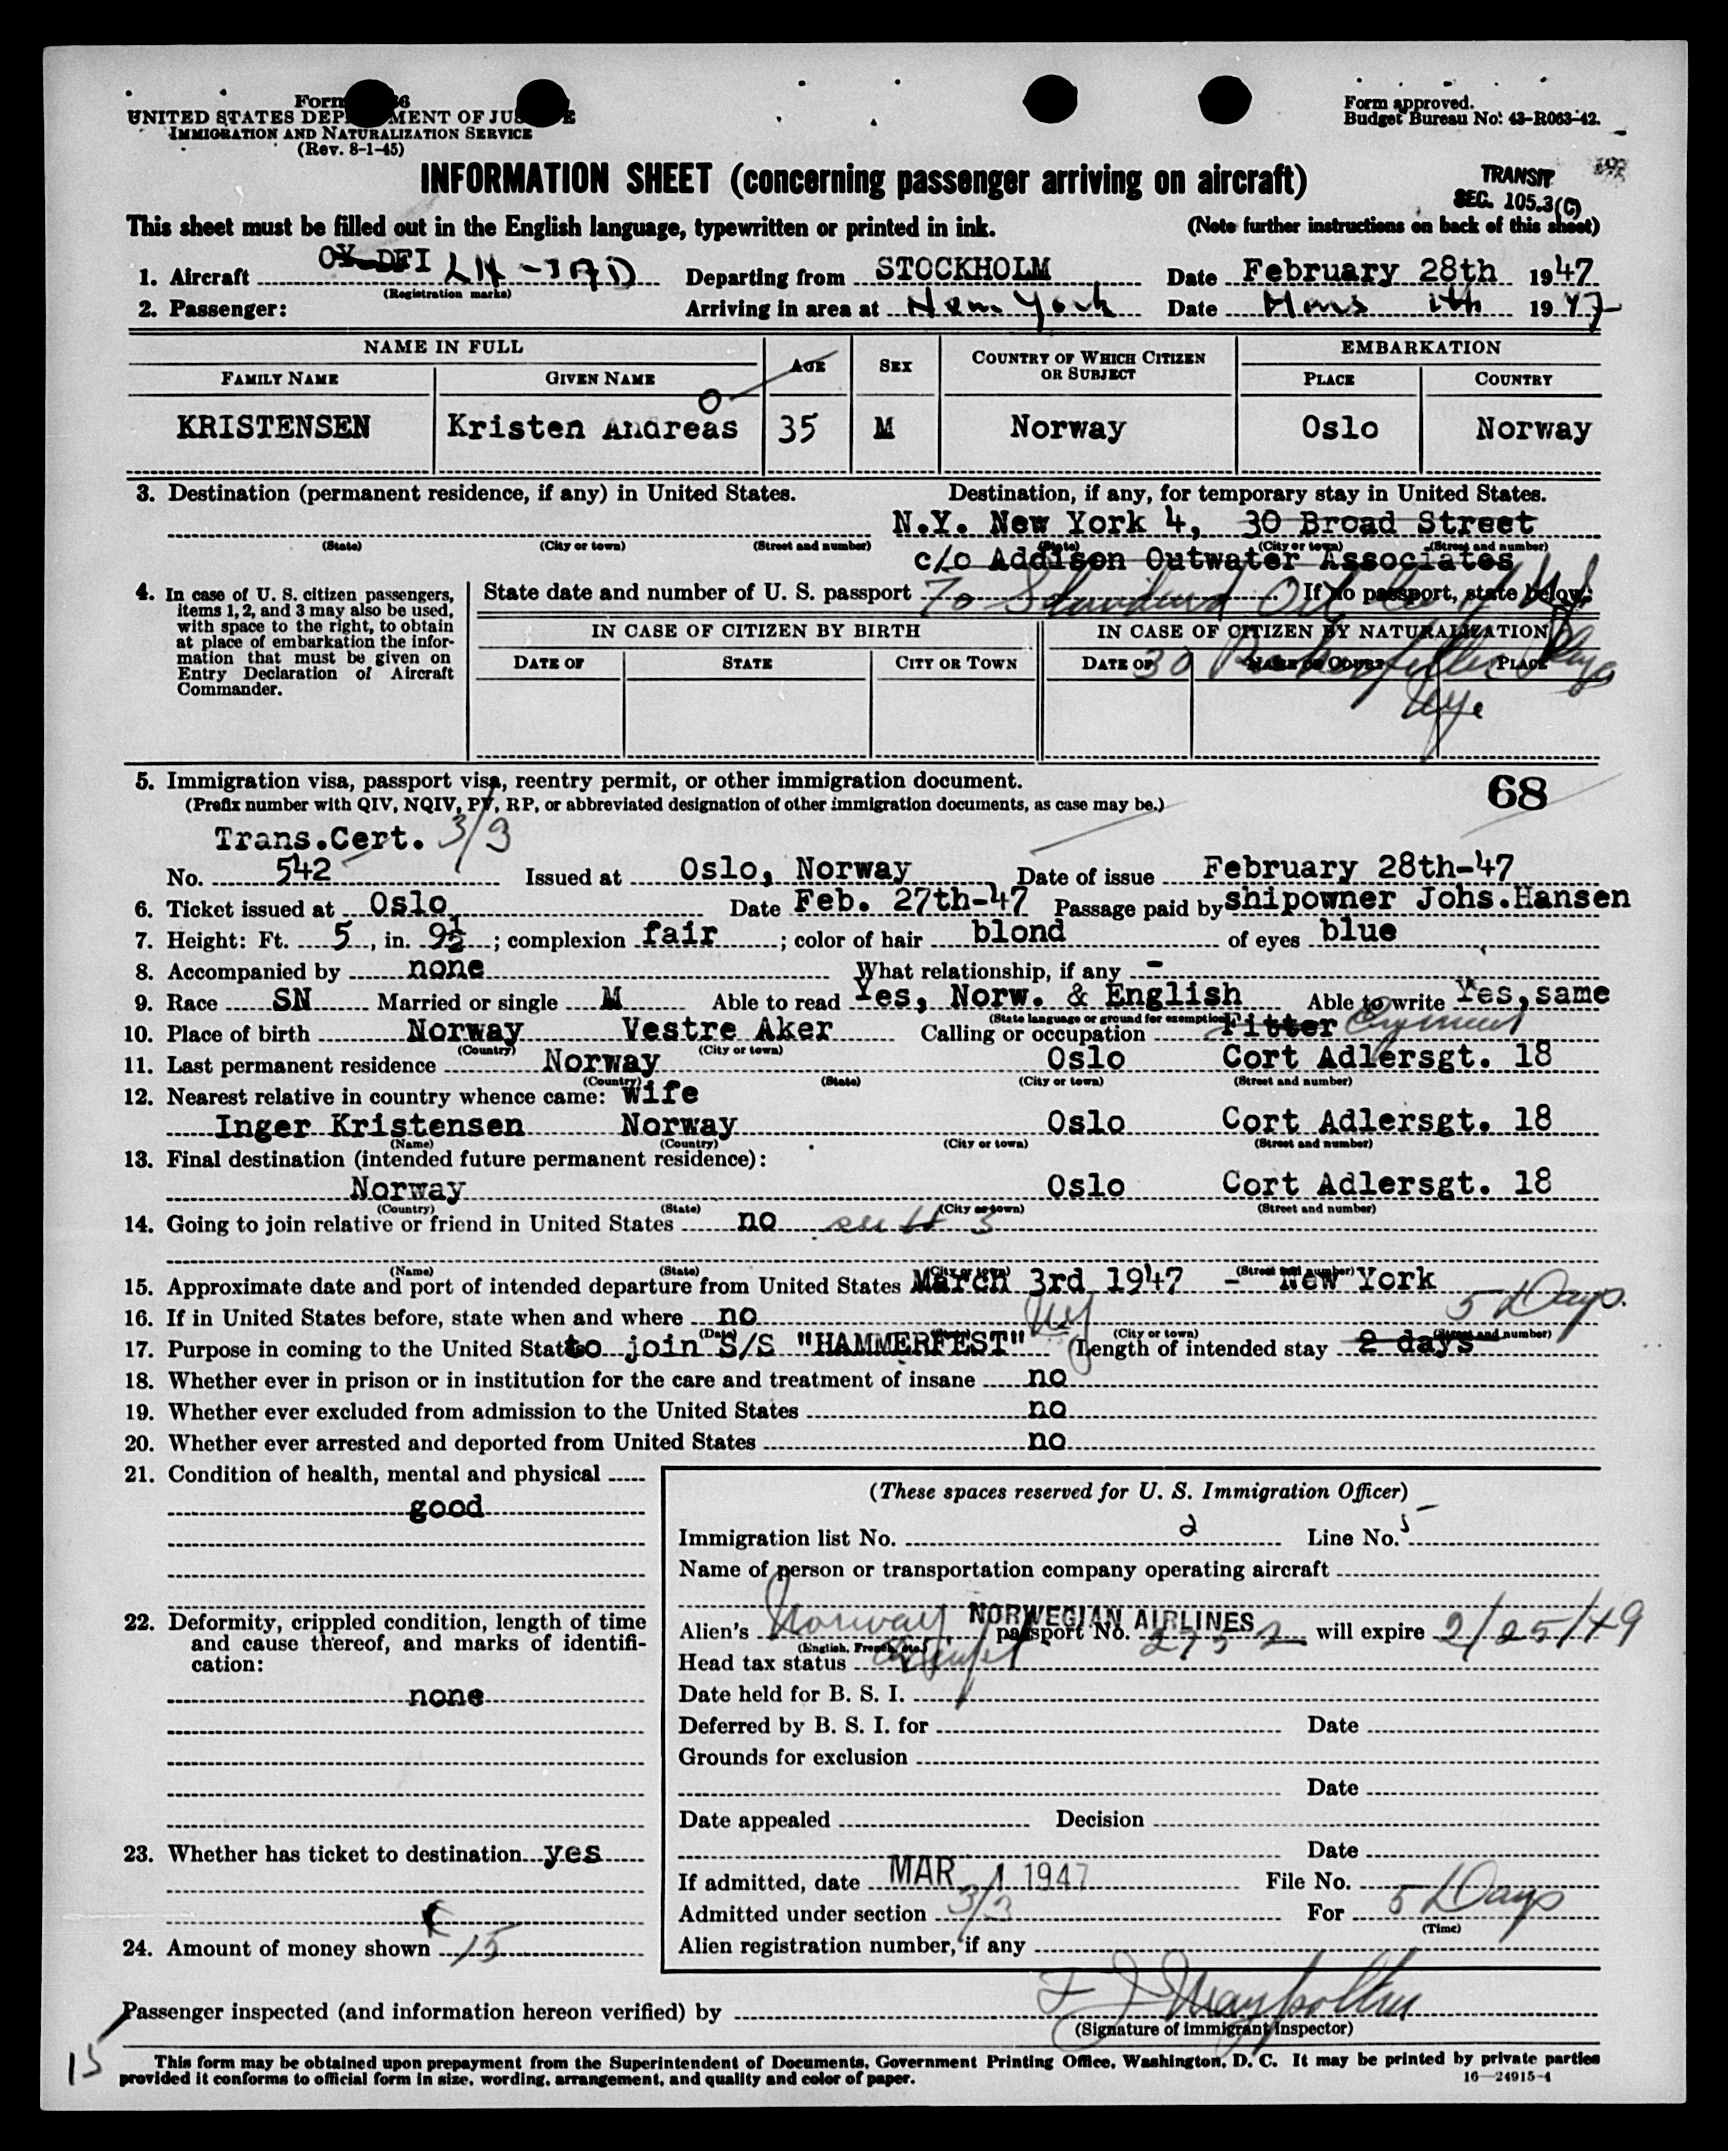 Form
UNITED STATES DEPARTMENT OF JUSTICE
IMMIGRATION AND NATURALIZATION SERVICE
(Rev. 8-1-45)
Form approved.
Budget Bureau No. 43-R063-42.
INFORMATION SHEET (concerning passenger arriving on aircraft)
TRANSIT
SEC. 105.3(C)
This sheet must be filled out in the English language, typewritten or printed in ink. (Note further instructions on back of this sheet)
1. Aircraft OY-DFI LN-IAD Departing from STOCKHOLM Date February 28th 1947
(Registration marks)
2. Passenger: Arriving in area at New York Date 1947
NAME IN FULL AGE SEX COUNTRY OF WHICH CITIZEN OR SUBJECT EMBARKATION
FAMILY NAME GIVEN NAME PLACE COUNTRY
KRISTENSEN Kristen Andreas 35 M Norway Oslo Norway
3. Destination (permanent residence, if any) in United States. Destination, if any, for temporary stay in United States.
N.Y. New York 4, 30 Broad Street
(State) (City or town) (Street and number) (State) (City or town) (Street and number)
c/o Addison Outwater Associates
4. In case of U. S. citizen passengers, items 1, 2, and 3 may also be used, with space to the right, to obtain at place of embarkation the information that must be given on Entry Declaration of Aircraft Commander.
State date and number of U. S. passport If no passport, state below:
To Standard Oil Co of NJ
IN CASE OF CITIZEN BY BIRTH IN CASE OF CITIZEN BY NATURALIZATION
DATE OF STATE CITY OR TOWN DATE OF NAME OF COURT PLACE
30 Rockefeller Plaza
NYC
68
5. Immigration visa, passport visa, reentry permit, or other immigration document.
(Prefix number with QIV, NQIV, PV, RP, or abbreviated designation of other immigration documents, as case may be.)
Trans.Cert. 3/3
No. 542 Issued at Oslo, Norway Date of issue February 28th-47
6. Ticket issued at Oslo, Date Feb. 27th-47 Passage paid by shipowner Johs.Hansen
7. Height: Ft. 5, in. 9½; complexion fair; color of hair blond of eyes blue
8. Accompanied by none What relationship, if any -
9. Race SN Married or single M Able to read Yes, Norw. & English Able to write Yes,same
(State language or ground for exemption)
10. Place of birth Norway Vestre Aker Calling or occupation Fitter
(Country) (City or town)
11. Last permanent residence Norway Oslo Cort Adlersgt. 18
(Country) (State) (City or town) (Street and number)
12. Nearest relative in country whence came: wife
Inger Kristensen Norway Oslo Cort Adlersgt. 18
(Name) (Country) (City or town) (Street and number)
13. Final destination (intended future permanent residence):
Norway Oslo Cort Adlersgt. 18
(Country) (State) (City or town) (Street and number)
14. Going to join relative or friend in United States no see # 3
(Name) (State) (City or town) (Street and number)
15. Approximate date and port of intended departure from United States March 3rd 1947 - New York
5 Days.
16. If in United States before, state when and where no
(Date) (City or town) (Street and number)
17. Purpose in coming to the United States to join S/S "HAMMERFEST" NY Length of intended stay 2 days
18. Whether ever in prison or in institution for the care and treatment of insane no
19. Whether ever excluded from admission to the United States no
20. Whether ever arrested and deported from United States no
21. Condition of health, mental and physical
good
22. Deformity, crippled condition, length of time and cause thereof, and marks of identification:
none
23. Whether has ticket to destination yes
24. Amount of money shown 15
(These spaces reserved for U. S. Immigration Officer)
Immigration list No. 2 Line No. 5
Name of person or transportation company operating aircraft
NORWEGIAN AIRLINES
Alien's Norway passport No. 2752 will expire 2/25/49
(English, French, etc.)
Head tax status Exempt
Date held for B. S. I.
Deferred by B. S. I. for Date
Grounds for exclusion
Date
Date appealed Decision
Date
If admitted, date MAR 1 1947 File No.
Admitted under section 3/3 For 5 Days
(Time)
Alien registration number, if any
Passenger inspected (and information hereon verified) by
(Signature of immigrant inspector)
15
This form may be obtained upon prepayment from the Superintendent of Documents, Government Printing Office, Washington, D. C. It may be printed by private parties
provided it conforms to official form in size, wording, arrangement, and quality and color of paper.
16—24915-4